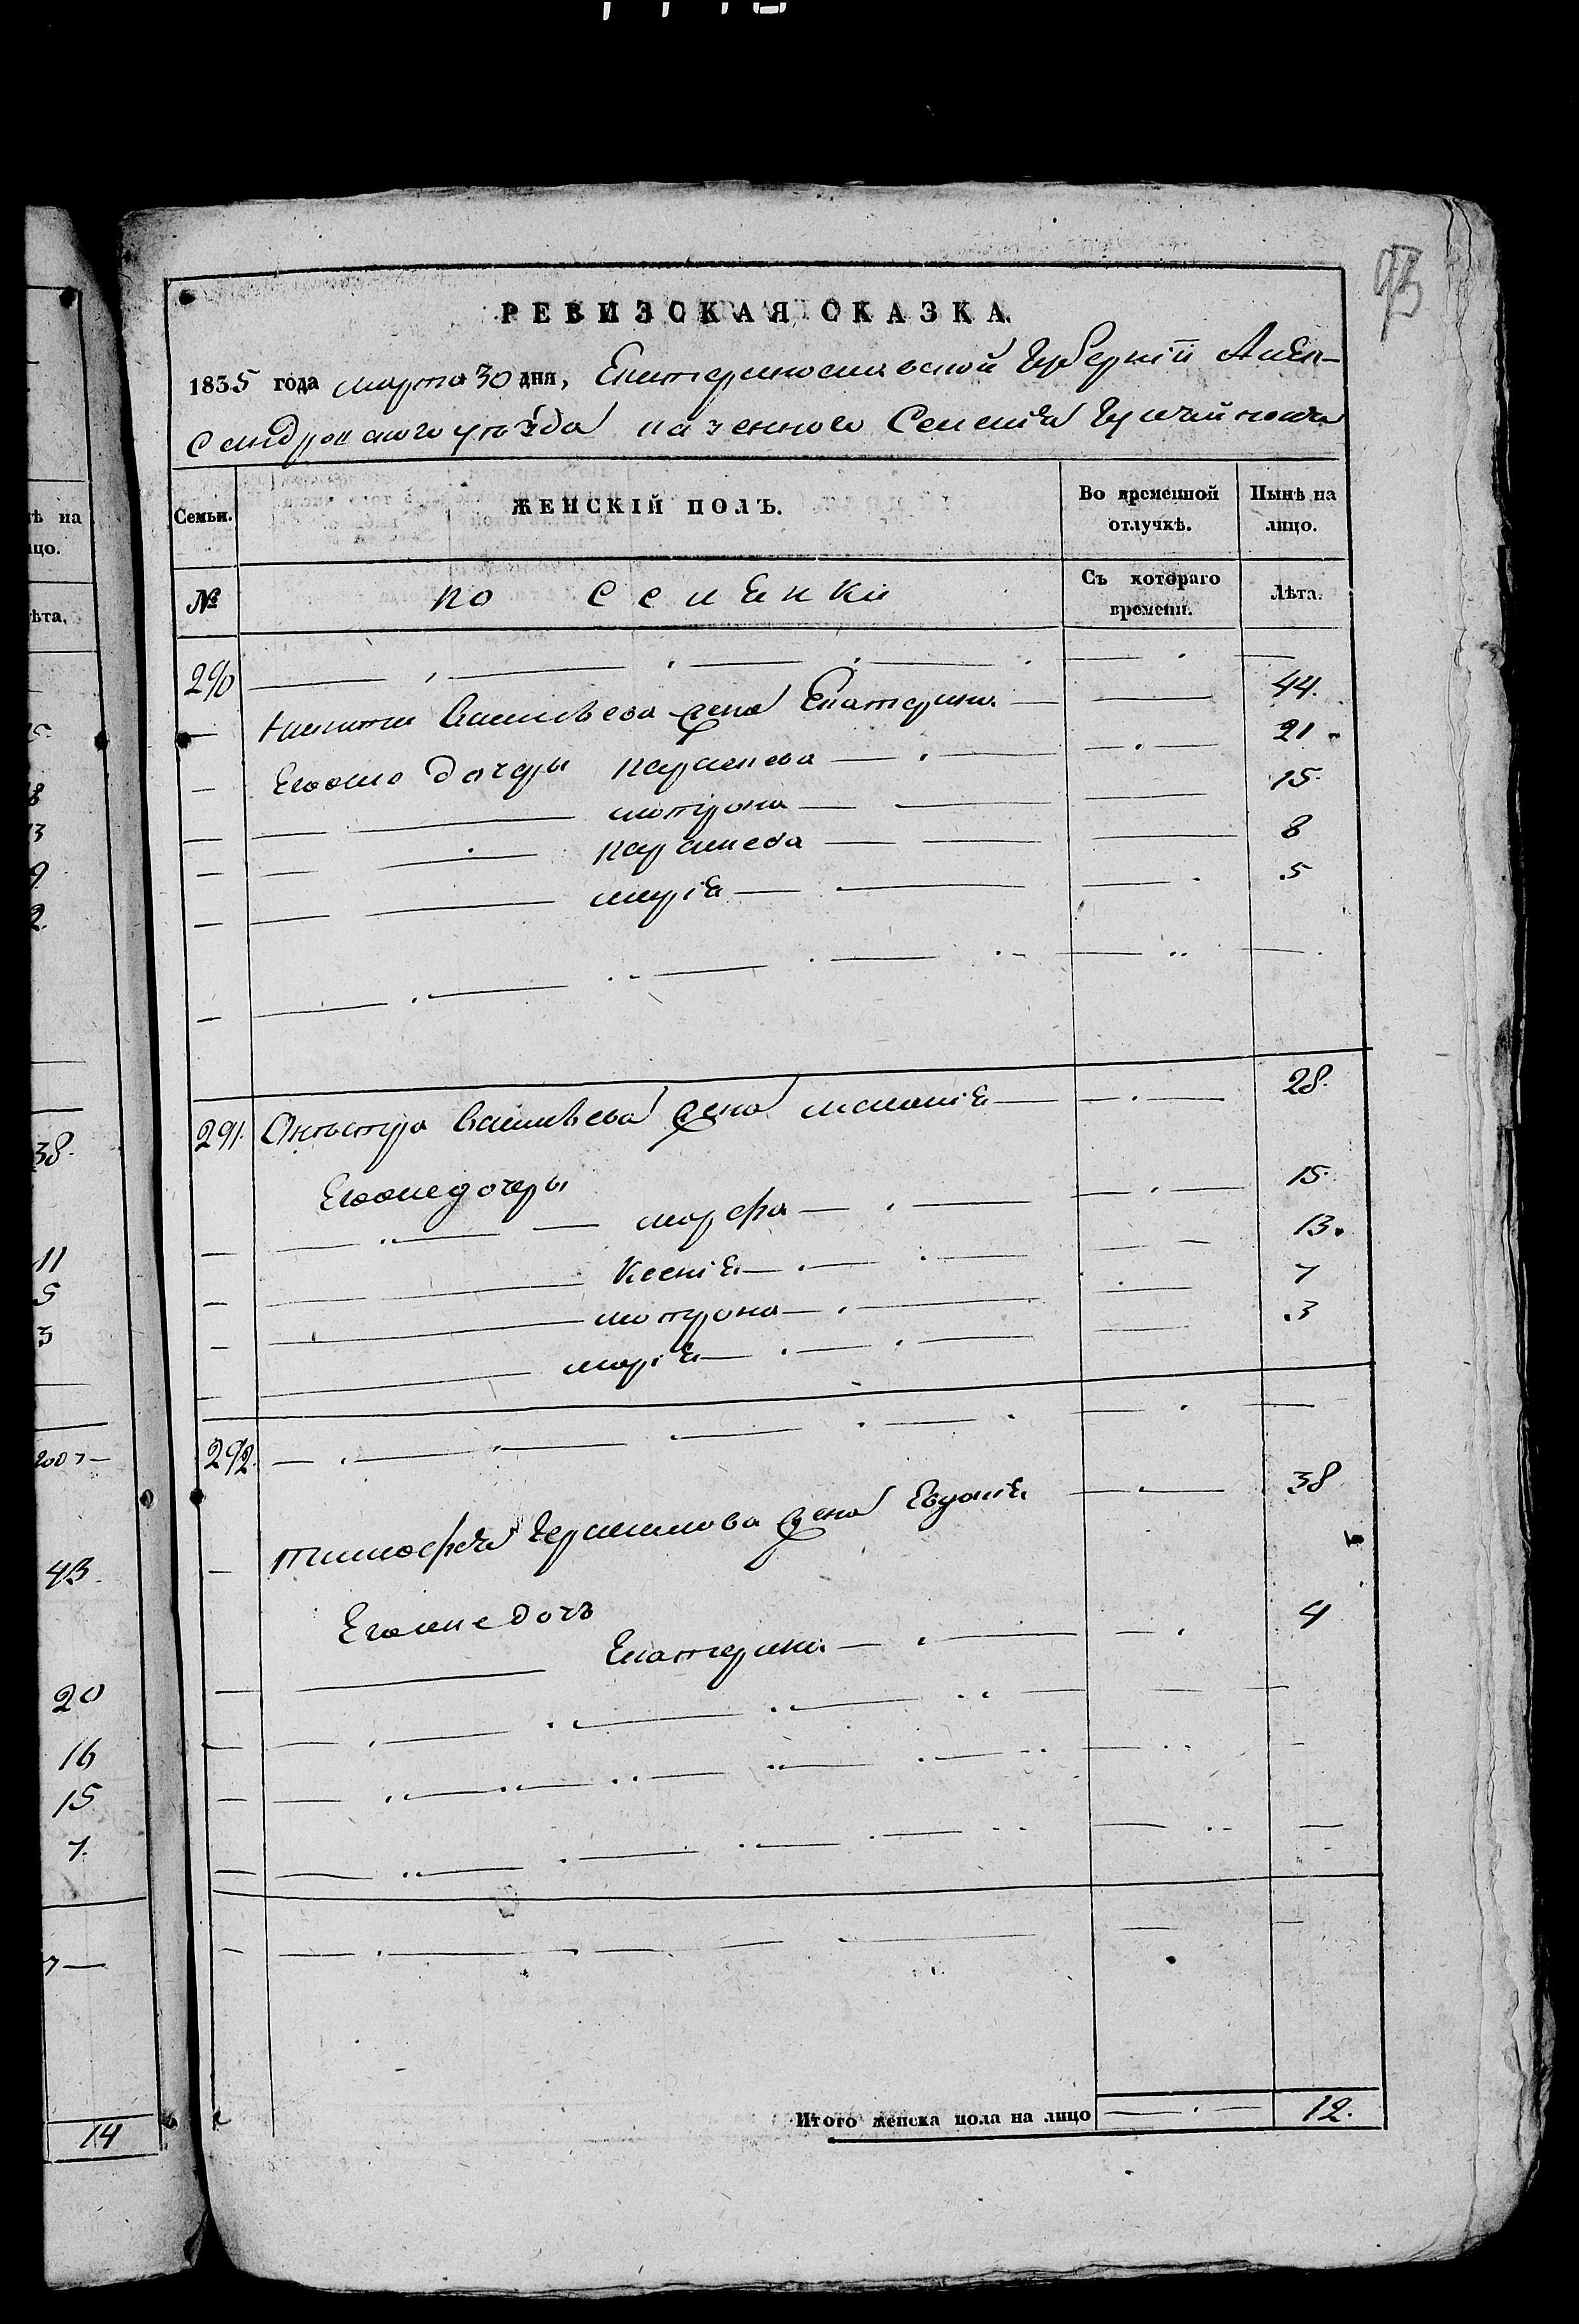 93
РЕВИЗСКАЯ СКАЗКА
1835 года марта 30 дня, Екатеринославской Губернiи Алек-
сандровского уѣзда казенного Селенiя Гуляйполя
Семьи.
ЖЕНСКIЙ ПОЛЪ.
Во временной отлучкѣ.
Нынѣ на лицо.
№
Съ котораго времени.
Лѣта.
290
Никиты Васильева жена Екатерина 44.
Егоже дочеры Параскева 21
мотрона 15.
Параскева 8
марiя 5
291. Василѣева жена меланiя 28.
Егоже дочеры
марфа 15.
Ксенiя 13.
мотрона 7
марiя 3
292.
тимофея Герасимова жена Евдокiя 38
Егоже дочъ
Екатерина 4
Итого женска пола на лицо 12.
ѣ на
цо.
ѣта,
38.
11
5
3
43.
20
16
15
7.
14